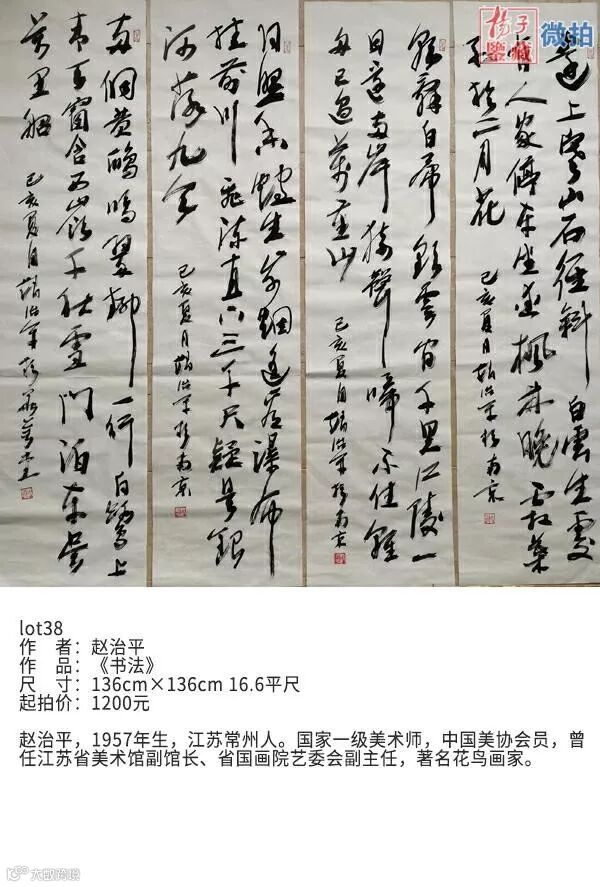 扬子
鉴藏
微拍
遠上寒山石徑斜白雲生處
有人家停車坐愛楓林晚霜葉
红於二月花 己亥夏月趙治平於南京
朝辭白帝彩雲间千里江陵一
日還两岸猿聲啼不住輕
舟已過萬重山 己亥夏月趙治平於南京
日照香爐生紫烟遥看瀑布
挂前川飛流直下三千尺疑是銀
河落九天 己亥夏月趙治平於南京
两個黄鸝鳴翠柳一行白鷺上
青天窗含西嶺千秋雪門泊東吴
萬里船 己亥夏月趙治平
lot38
作 者：赵治平
作 品：《书法》
尺 寸：136cm×136cm 16.6平尺
起拍价：1200元
赵治平，1957年生，江苏常州人。国家一级美术师，中国美协会员，曾
任江苏省美术馆副馆长、省国画院艺委会副主任，著名花鸟画家。